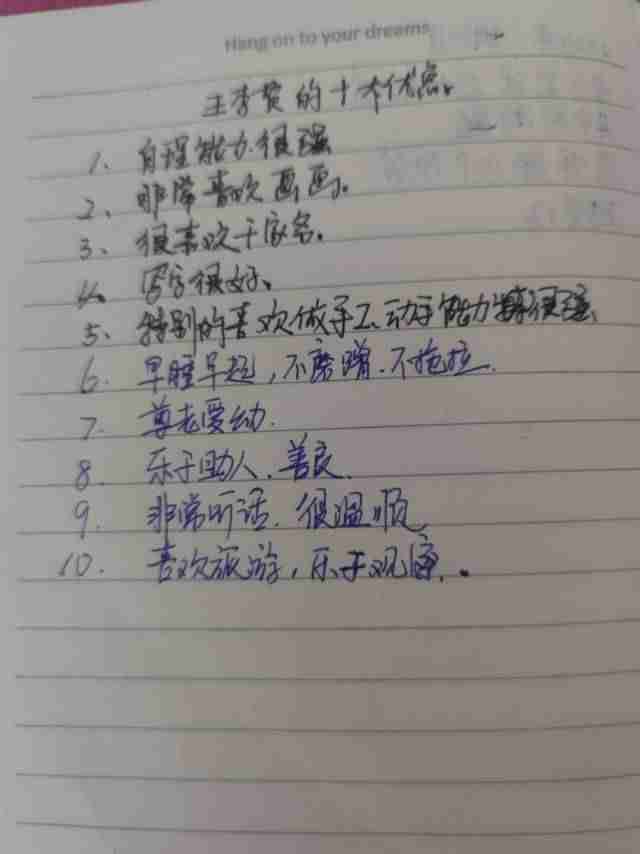 Hang on to your dreams
王李赞的十大优点。
1、自理能力很强
2、非常喜欢画画。
3、很喜欢干家务。
4、写字很好、
5、特别的喜欢做手工、动手能力特很强、
6. 早睡早起，不磨蹭.不拖拉.
7. 尊老爱幼.
8. 乐于助人、善良.
9. 非常听话. 很温顺
10. 喜欢旅游，乐于观察.